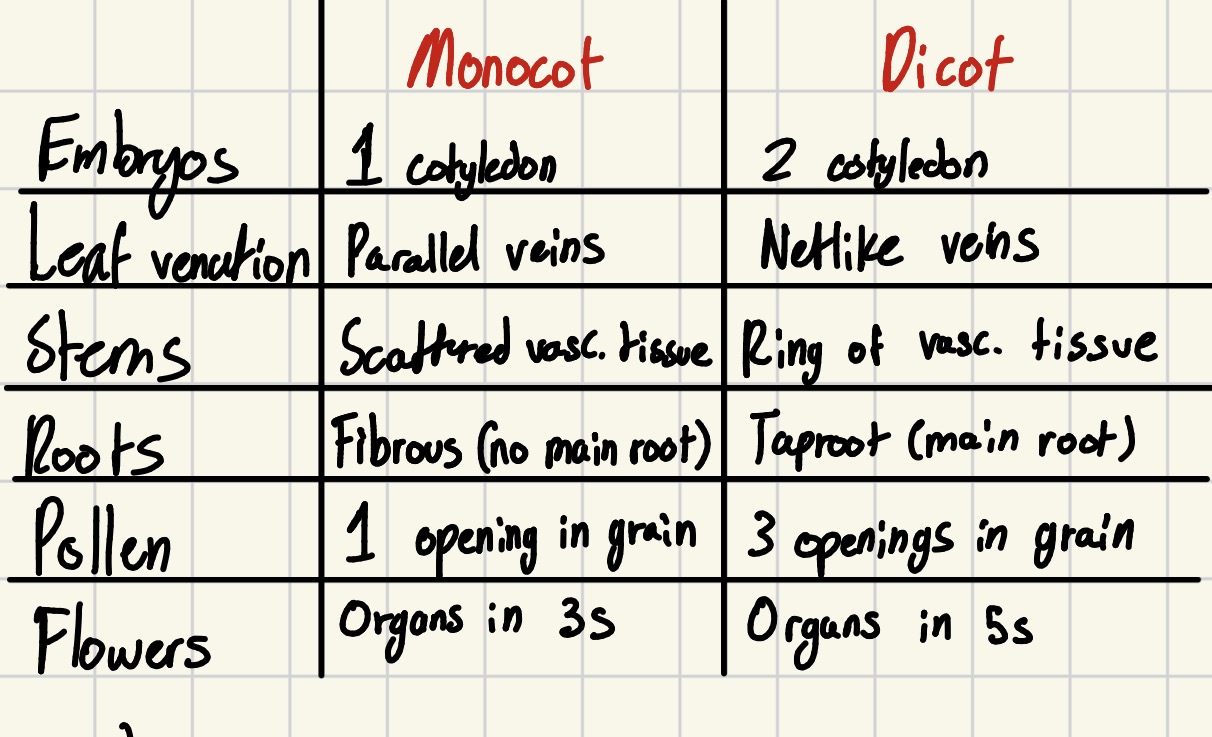 Monocot Dicot
Embryos 1 cotyledon 2 cotyledon
Leaf venation Parallel veins Netlike veins
Stems Scattered vasc. tissue Ring of vasc. tissue
Roots Fibrous (no main root) Taproot (main root)
Pollen 1 opening in grain 3 openings in grain
Flowers Organs in 3s Organs in 5s